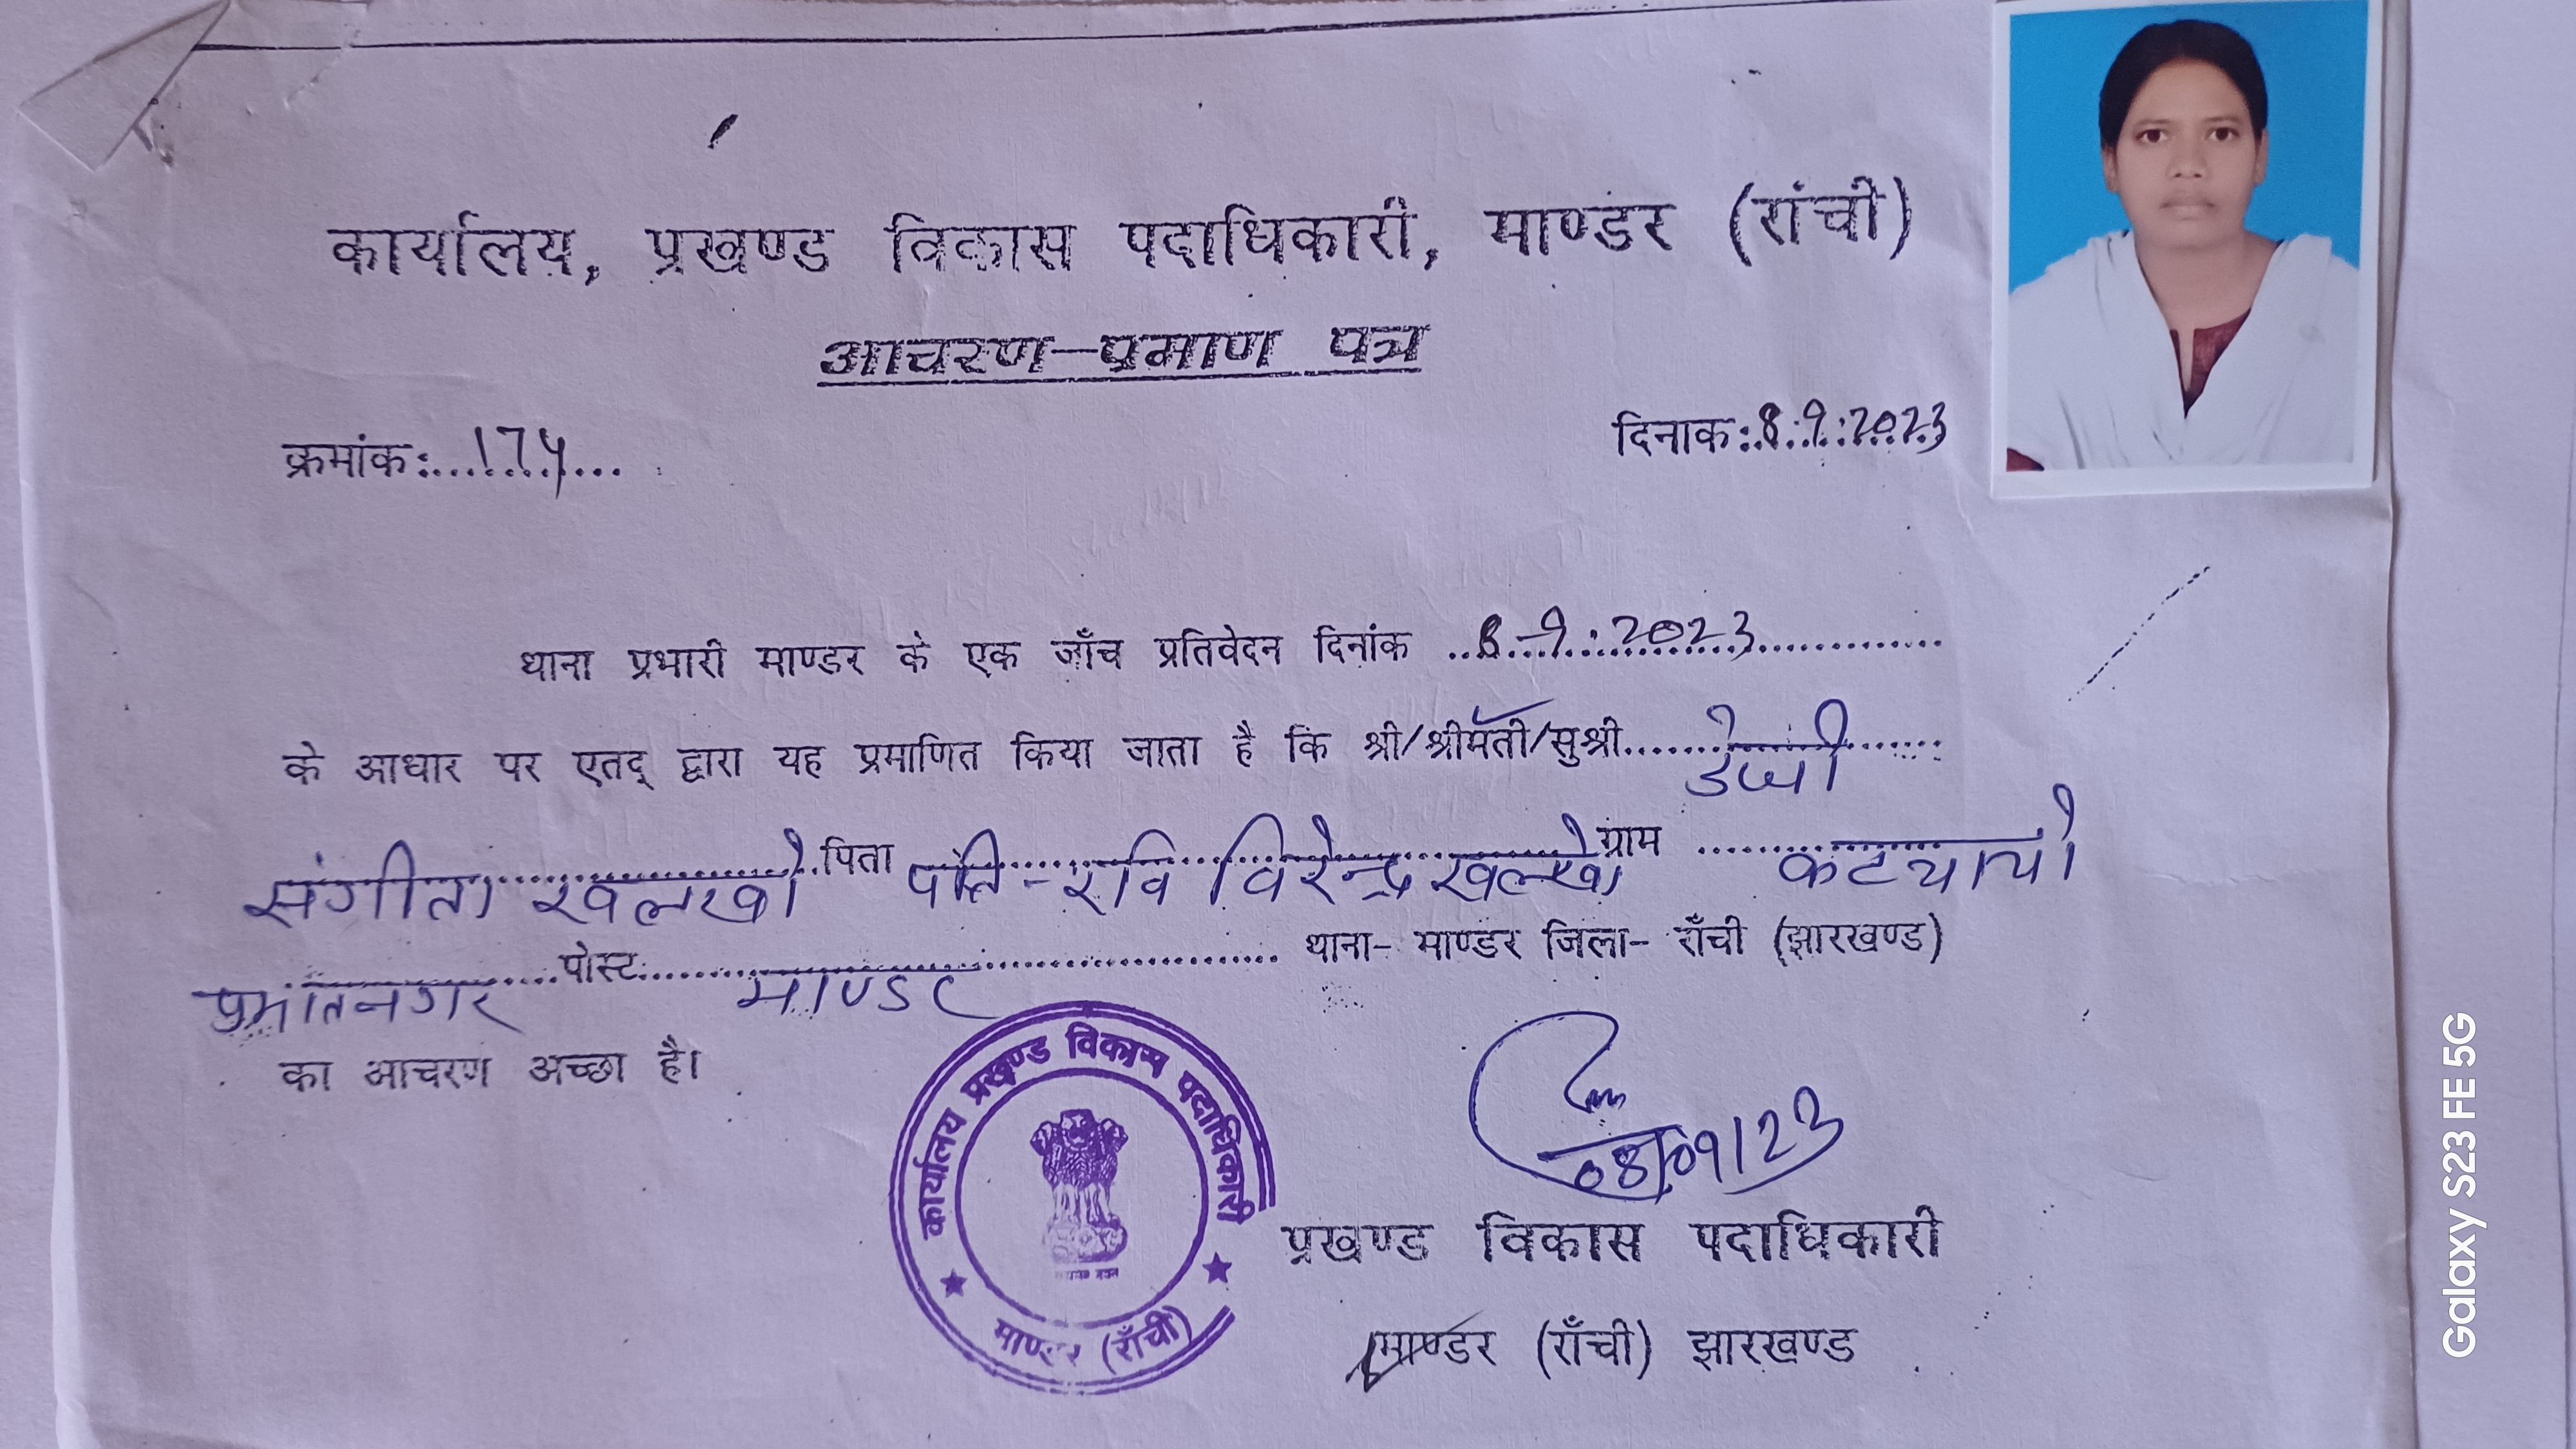 कार्यालय, प्रखण्ड विकास पदाधिकारी, माण्डर (रांची)
आचरण-प्रमाण पत्र
क्रमांक:...174... दिनाक:.8.9.2023
थाना प्रभारी माण्डर के एक जाँच प्रतिवेदन दिनांक ..8-9.2023..........
के आधार पर एतद् द्वारा यह प्रमाणित किया जाता है कि श्री/श्रीमती/सुश्री....... डेजी
संगीता खलखो पिता पति-रवि विरेन्द्र खल्खो ग्राम
पोस्ट......... माण्डर थाना- माण्डर जिला- राँची (झारखण्ड)
का आचरण अच्छा है।
कार्यालय प्रखण्ड विकास पदाधिकारी
माण्डर (राँची)
08/09/23
प्रखण्ड विकास पदाधिकारी
माण्डर (राँची) झारखण्ड
Galaxy S23 FE 5G